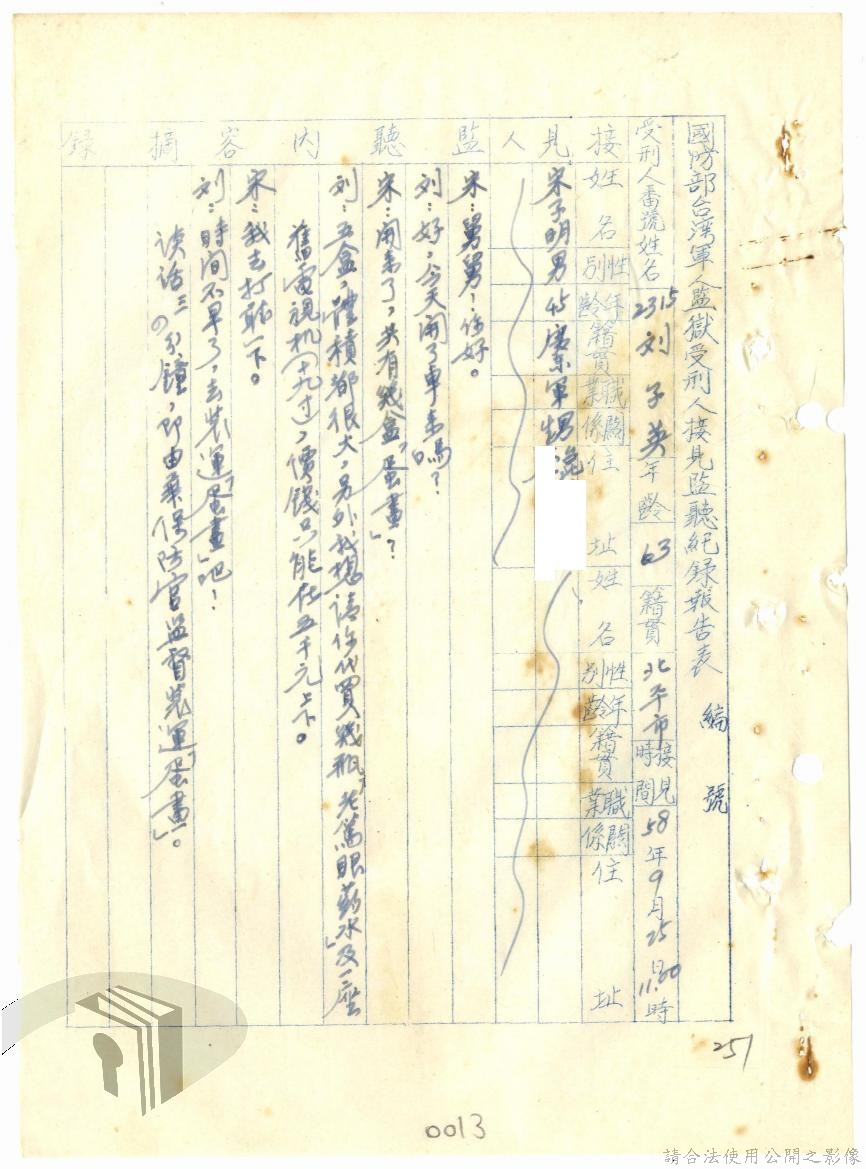 國防部台湾軍人監獄受刑人接見監聽紀錄報告表 編號
受刑人番號姓名 2315 刘子英 年齡 63 籍貫 北平市 接見時間 58年9月25日11.00時
接見人 姓名 性別 年齡 籍貫 職業 關係 住址 姓名 性別 年齡 籍貫 職業 關係 住址
宋子明 男 45 廣东 軍 甥
監聽內容摘錄
宋：舅舅！你好。
刘：好，今天開了車來嗎？
宋：開來了，共有幾盒「蛋畫」？
刘：五盒，體積都很大，另外我想請你代買幾瓶「老篤眼葯水」及一座
舊電視机（十九寸），價錢只能在五千元上下。
宋：我去打聽一下。
刘：時间不早了，去裝運「蛋畫」吧！
談话三分鐘，即由桑保防官监督裝運「蛋畫」。
251
0013
請合法使用公開之影像